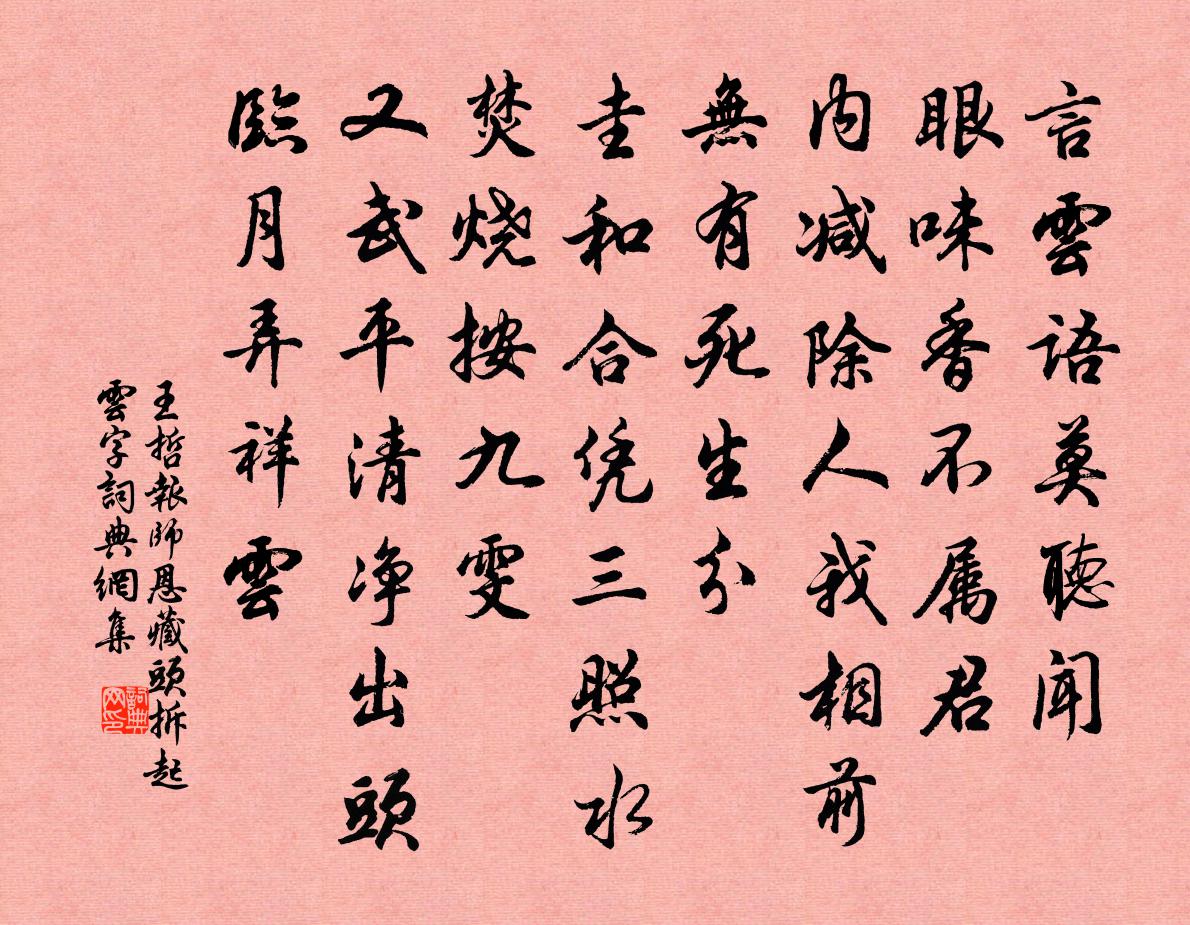 言雲語莫聽聞
眼味香不属君
内减除人我相前
無有死生分
圭和合凭三照水
焚烧按九雯
又武平清净出頭
臨月弄祥雲
王哲報師恩藏頭拆起
雲字詞典網集
詞典
网印